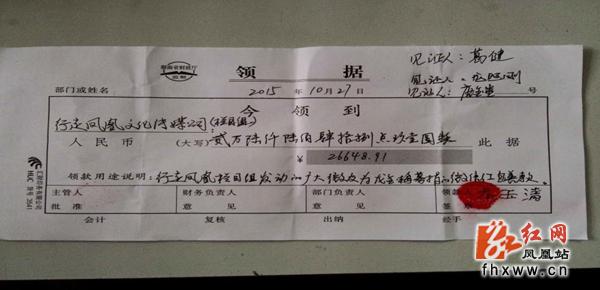 湖南省财政厅
监制
领 据
见证人：葛健
见证人：
见证人：
部门或姓名
2015 年 10 月 27 日
号
今 领 到
行走凤凰文化传媒公司(栏目组)
人民币 (大写) 贰万陆仟陆佰肆拾捌点玖壹圆整 此据
¥ 26648.91
领款用途说明：行走凤凰栏目组发动的广大微友为龙
主管人 财务负责人 部门负责人 领款
批准 意见 意见 签
玉清
会计 复核 出纳 经手
汇财印务有限公司
HUC 货号 3541
红网
凤凰站
fhxww.cn